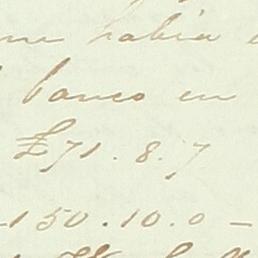 me habia
banco en
£71.8.7
-150.10.0-